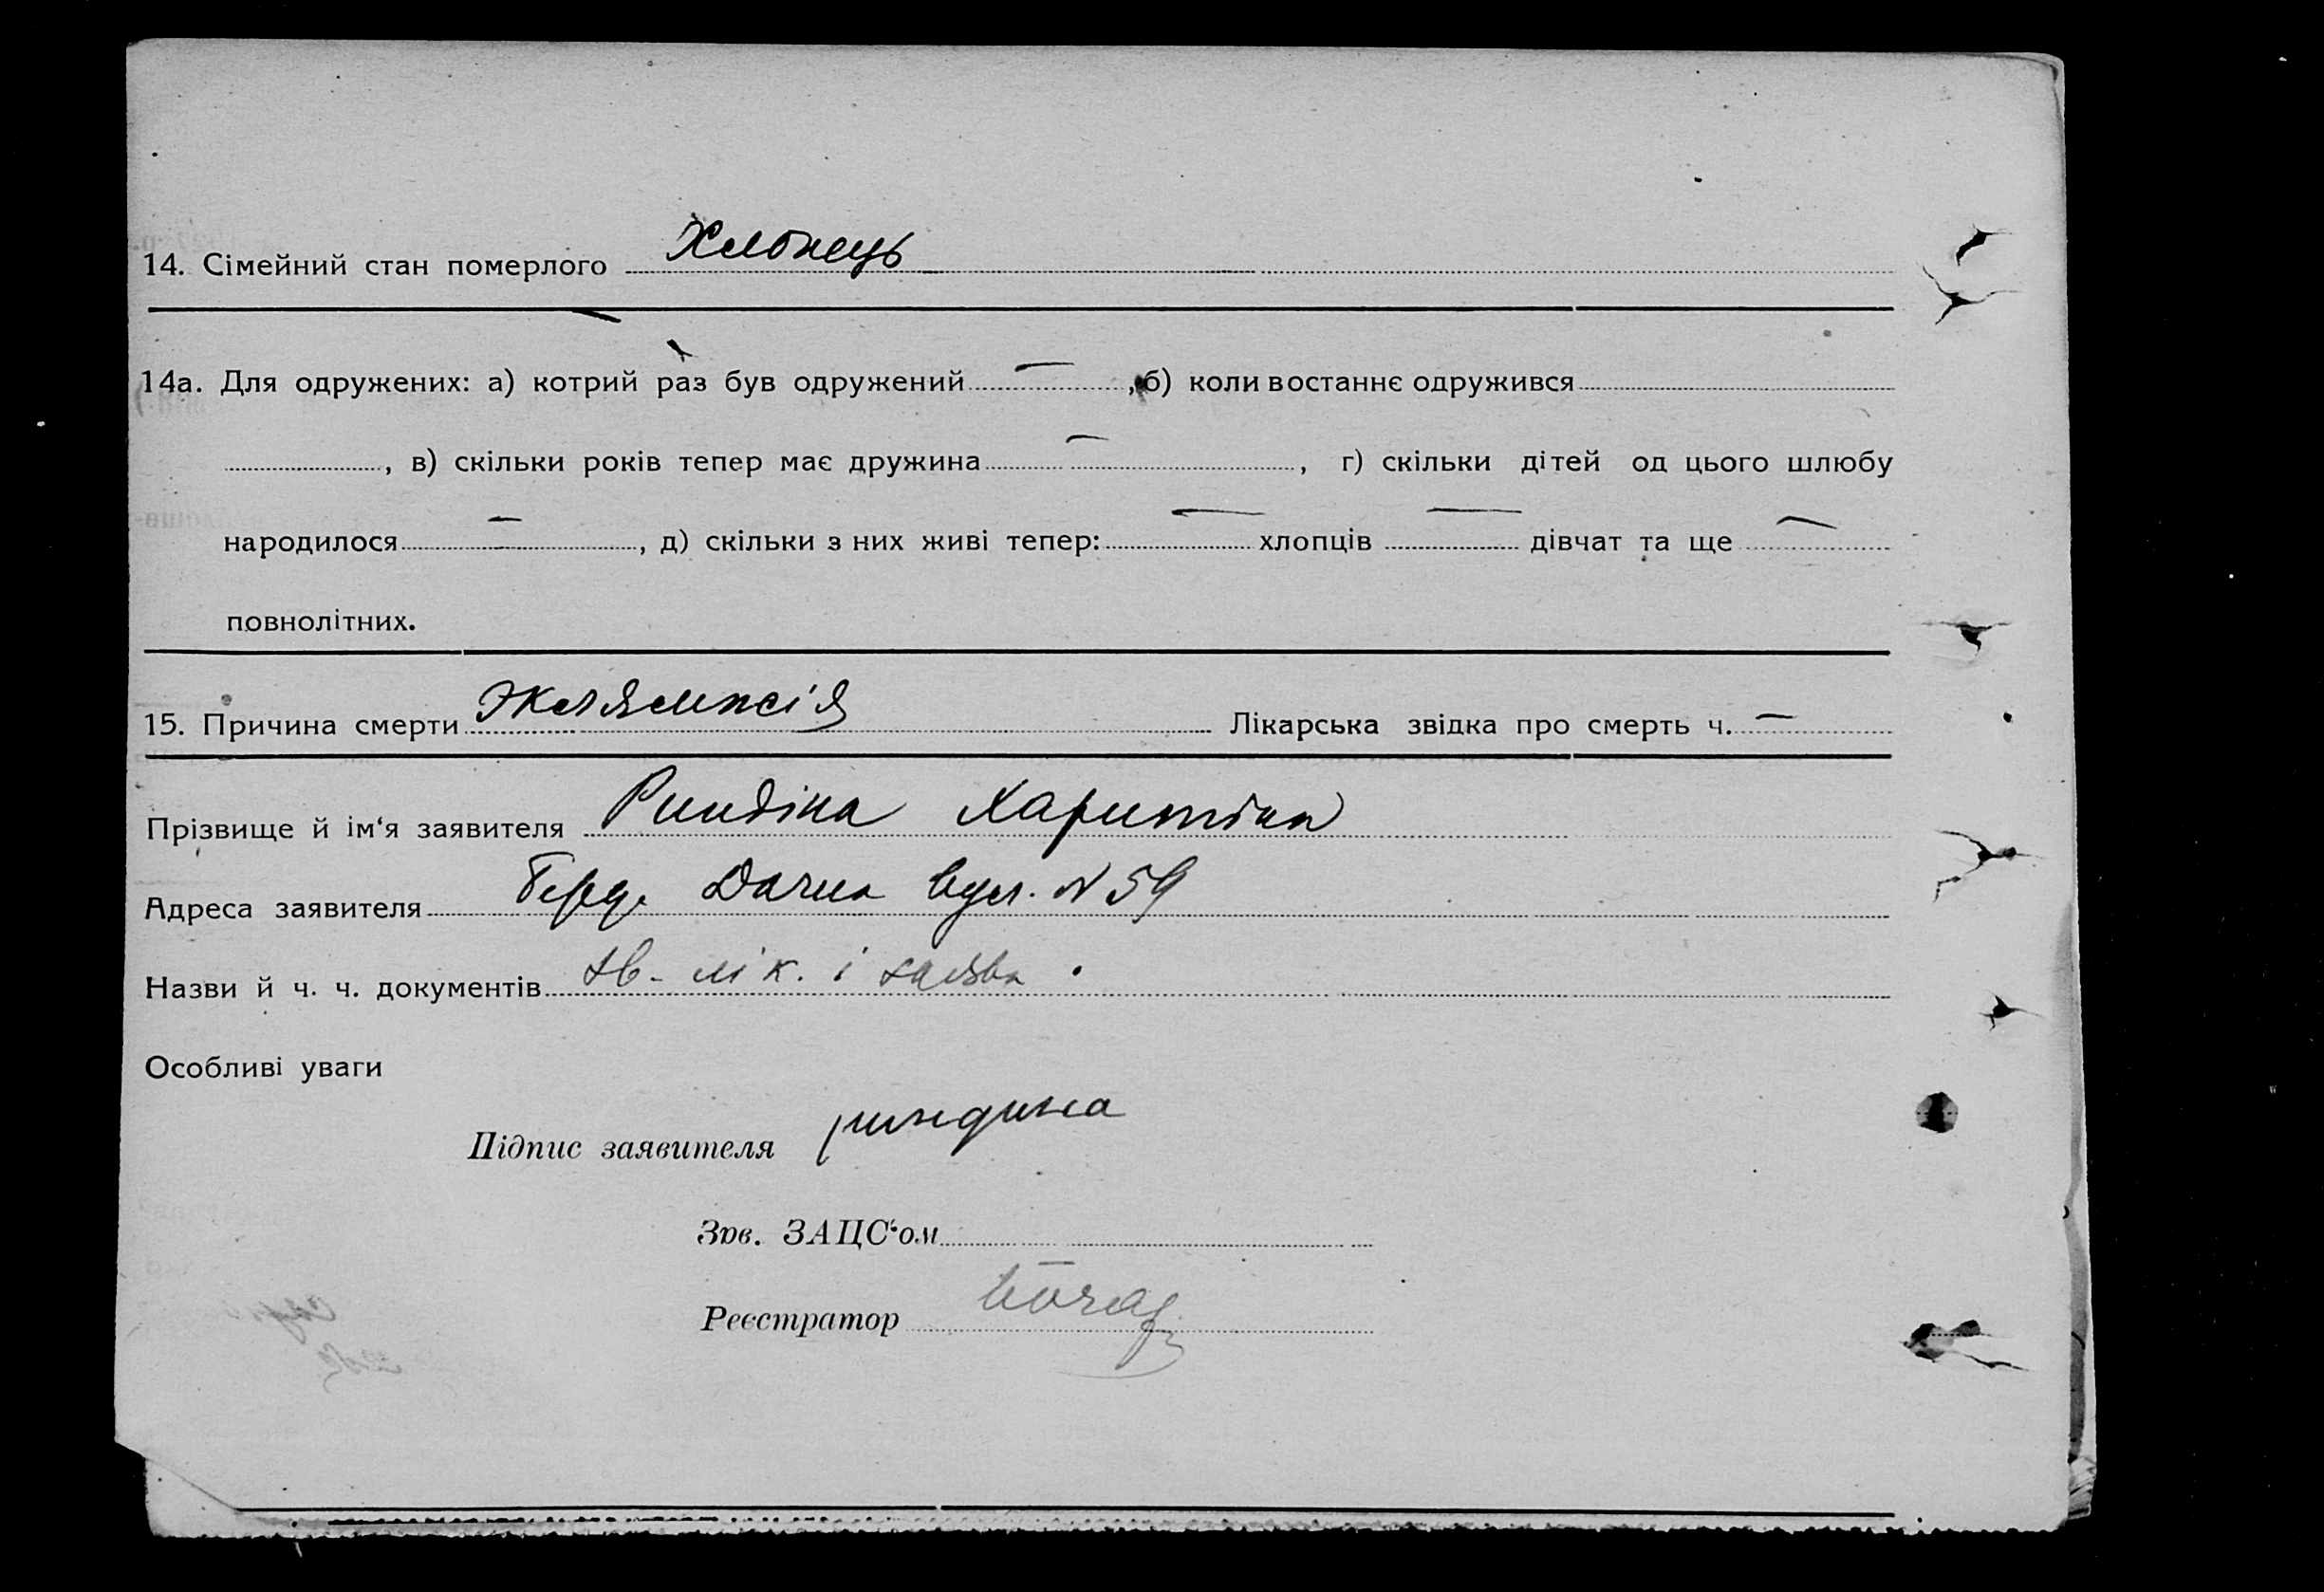 14. Сімейний стан померлого Хлопець
14а. Для одружених: а) котрий раз був одружений — , б) коли востаннє одружився
, в) скільки років тепер має дружина — , г) скільки дітей од цього шлюбу
народилося — , д) скільки з них живі тепер: — хлопців — дівчат та ще —
повнолітних.
15. Причина смерти Эклямпсія Лікарська звідка про смерть ч. —
Прізвище й ім‘я заявителя Риндіна Харитіна
Адреса заявителя Дачна вул. N 59
Назви й ч. ч. документів зв. лік. і заява.
Особливі уваги
Підпис заявителя риндина
Зав. ЗАЦС‘ом
Реєстратор